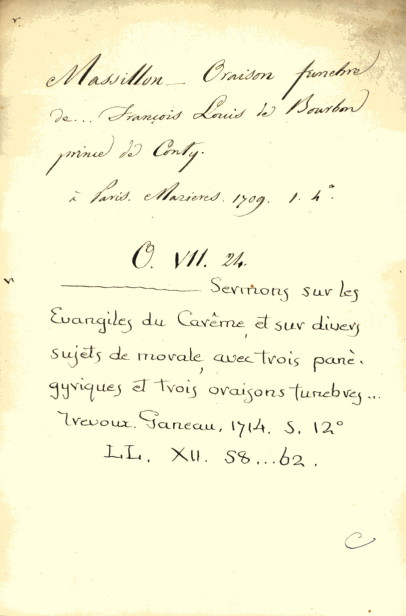 Massillon — Oraison funebre
de... François Louis de Bourbon
prince de Conty.
à Paris. Mazieres. 1709. 1. 4°.
O. VII. 24.
——— Sermons sur les
Evangiles du Carême, et sur divers
sujets de morale, avec trois pané-
gyriques et trois oraisons funebres...
Trevoux. Ganeau, 1714. 5. 12°
LL. XII. 58...62.
C